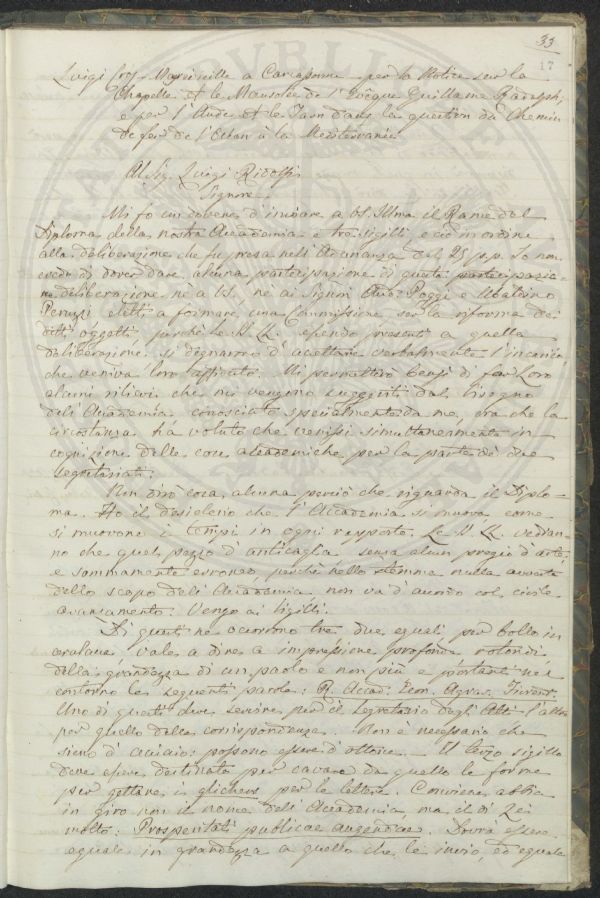 33
17
Luigi Cros-Mayrevieille a Carcassonne per la Notice sur la
Chapelle et le Mausolée de l'Evêque Guillame Radolph,
e per l'Aude et le Tarn dans la question du Chemin
de fer de l'Océan à la Mediterranée
Al Sig. Luigi Ridolfi
Signore
Mi fo un dovere d'inviare a VS. Illma il Rame del
Diploma della nostra Accademia e tre sigilli, e ciò in ordine
alla deliberazione che fu presa nell'Adunanza del 25 p.p. Io non
credo di dover dare alcuna partecipazione di questa partecipazio-
ne deliberazione nè a VS. nè ai Signori Poggi e
Peruzzi eletti a formare una Commissione per la riforma dei
detti oggetti, perchè le LL. essendo presenti a quella
deliberazione si degnarono d'accettare verbalmente l'incarico
che veniva loro affidato. Mi permetterò bensì di far Loro
alcuni rilievi che mi vengono suggeriti dal bisogno
dell'Accademia conosciuto specialmente da me, ora che la
circostanza ha voluto che venissi simultaneamente in
cognizione delle cose accademiche per la parte dei due
Segretariati:
Non dirò cosa alcuna perciò che riguarda il Diplo-
ma. Ho il desiderio che l'Accademia si muova come
si muovono i tempi in ogni rapporto. Le LL. vedran-
no che quel pezzo d'anticaglia senza alcun pregio d'arte,
e sommamente erroneo, perchè nello stemma nulla avverte
dello scopo dell'Accademia non va d'accordo col civile
avanzamento. Vengo ai sigilli.
Di questi ne occorrono tre due eguali per bollo in
ceralacca, vale a dire a impressione profonda rotondi,
della grandezza di un paolo e non più e portanti nel
contorno le seguenti parole: R. Accad. Econ. Agrar. Fiorent.
Uno di questi deve servire per il Segretario degli Atti l'altro
per quello della corrispondenza. Non è necessario che
sieno d'acciaio: possono essere d'ottone. Il terzo sigillo
deve essere destinato per cavare da quello le forme
per gettare i glichens per le lettere. Conviene abbia
in giro non il nome dell'Accademia, ma il di Lei
motto: Prosperitati publicae augendae. Dovrà essere
eguale in grandezza a quello che le invio, ed eguale